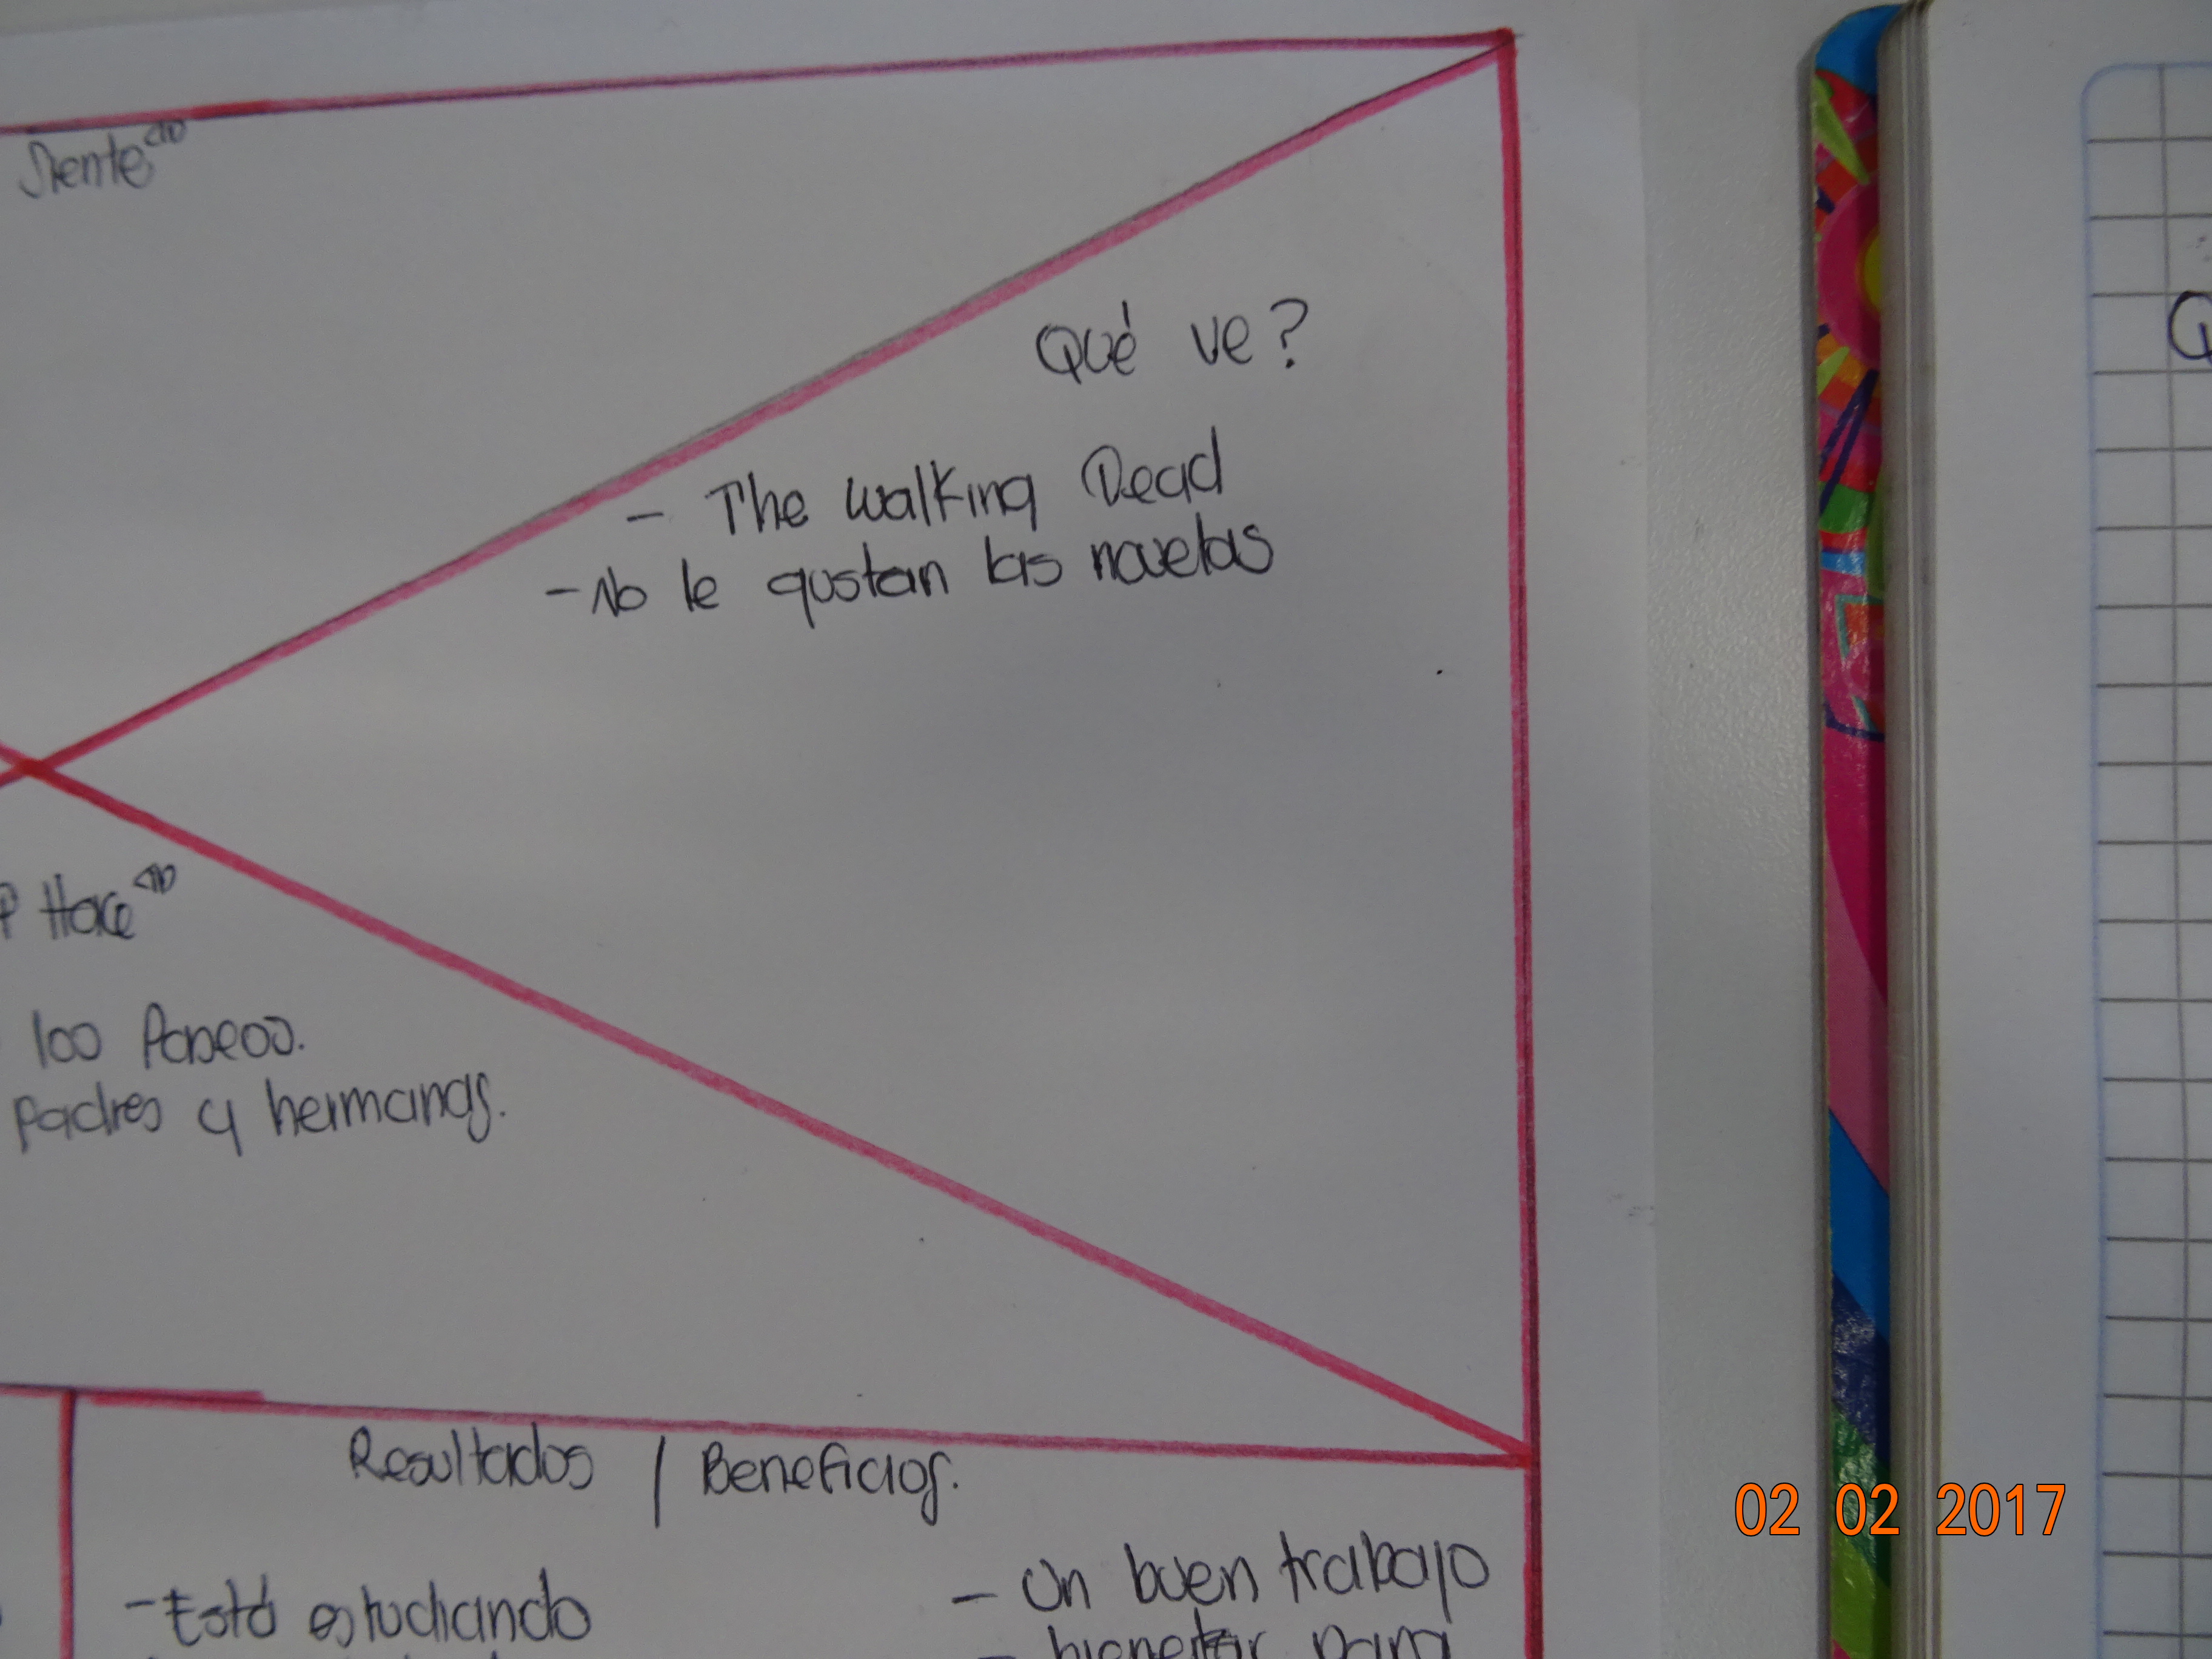 Siente
Qué ve?
- The walking Dead
- No le gustan las novelas
Hace
los Paseos.
Padres y hermanas.
Resultados / Beneficios.
- Está estudiando
- Un buen trabajo
- bienestar para
02 02 2017